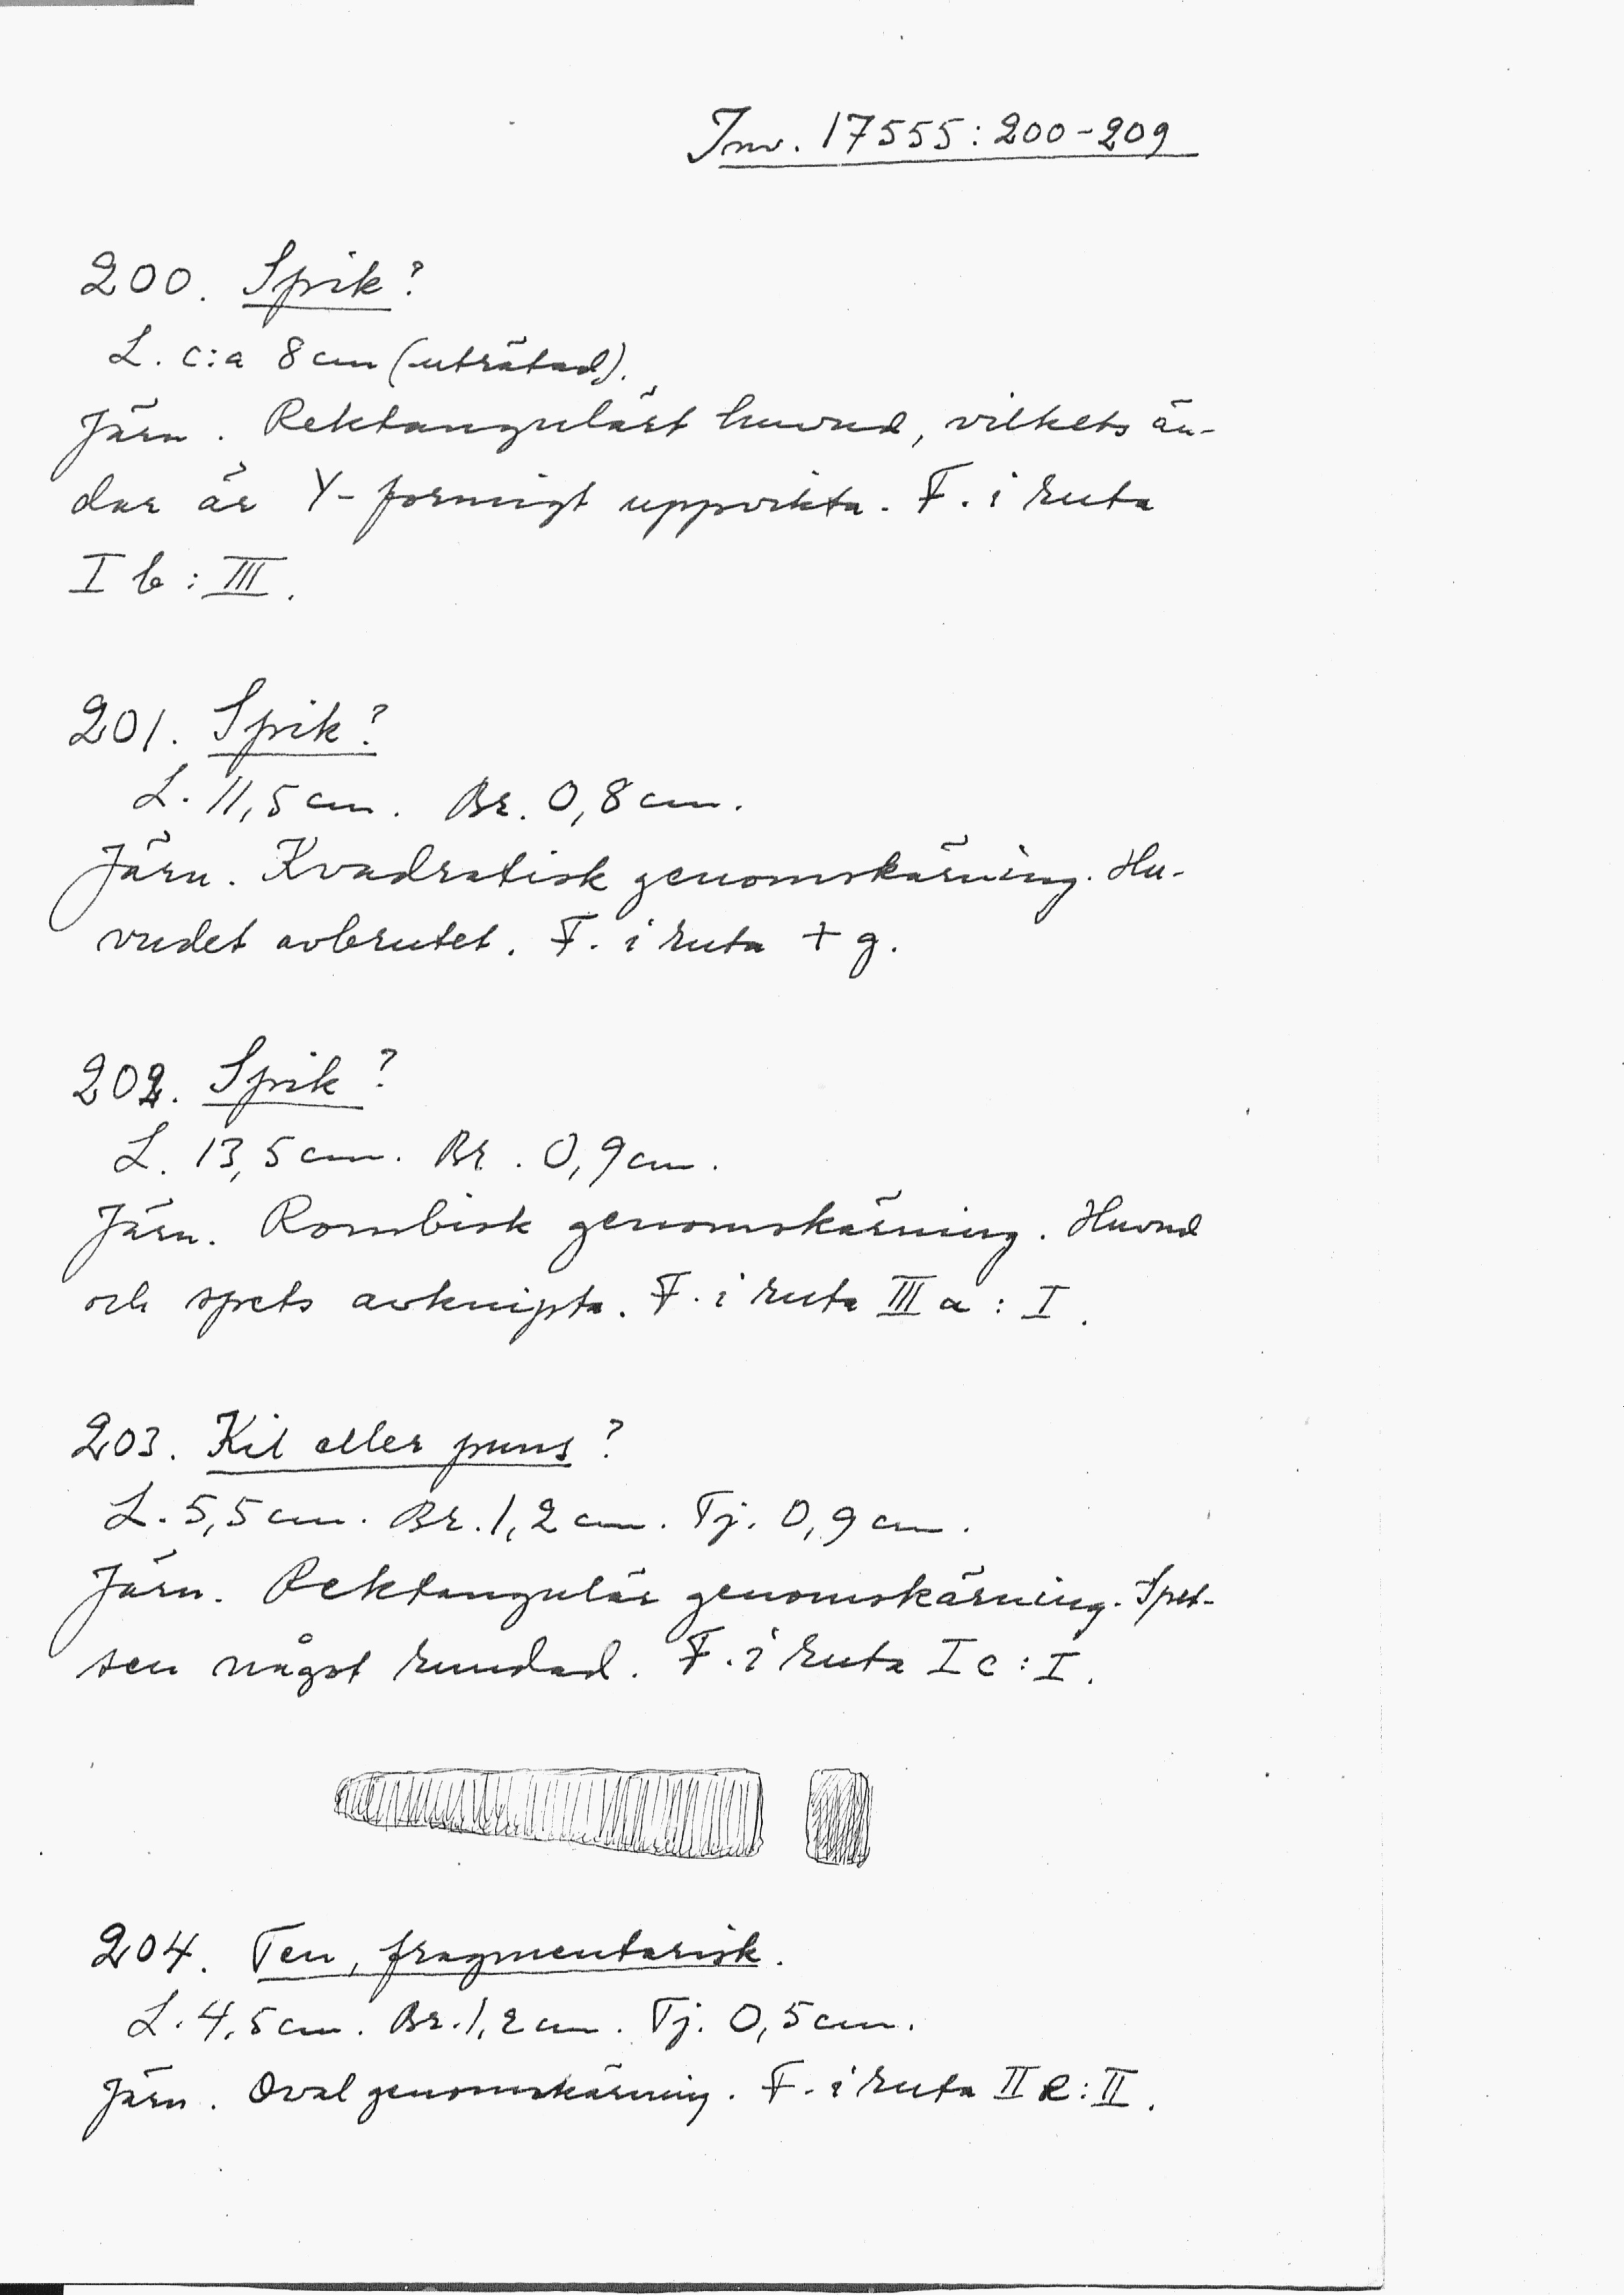 Inv. 17555:200-209
200. Spik?
L. c:a 8 cm (uträtad).
Järn. Rektangulärt huvud, vilkets än-
dar är Y-formigt uppvikta. F. i ruta
I b : III.
201. Spik?
L. 11,5 cm. Br. 0,8 cm.
Järn. Kvadratisk genomskärning. Hu-
vudet avbrutet. F. i ruta + g.
202. Spik?
L. 13,5 cm. Br. 0,9 cm.
Järn. Rombisk genomskärning. Huvud
och spets avknipta. F. i ruta III a : I.
203. Kil eller puns?
L. 5,5 cm. Br. 1,2 cm. Tj. 0,9 cm.
Järn. Rektangulär genomskärning. Spet-
sen något rundad. F. i ruta I c : I.
204. Ten, fragmentarisk.
L. 4,5 cm. Br. 1,2 cm. Tj. 0,5 cm.
Järn. Oval genomskärning. F. i ruta II e : II.